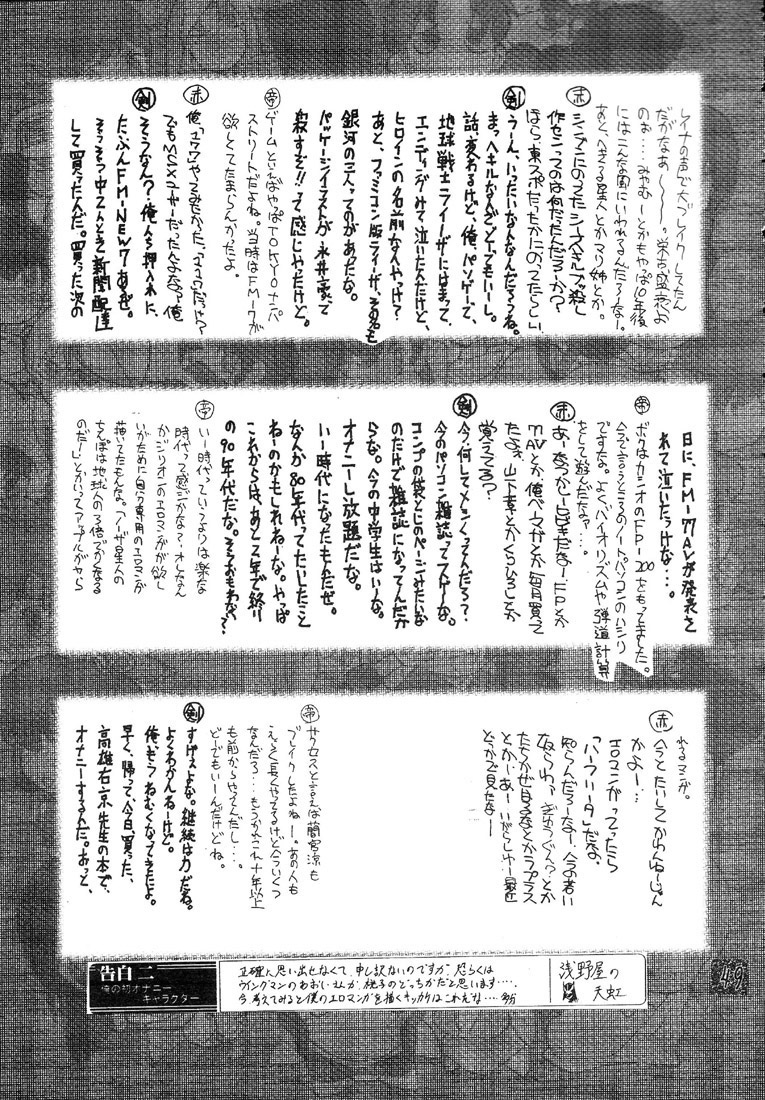 レイナの声で大ブレイクしてたん
だがなあ〜〜〜。栄古盛衰よ
のぉ…。みやむーとかもやっぱ6年後
にはこんな風にいわれるんだろーなー。
あと、へきる星人とかマリ姉とか。
赤 シンプにのってたシースヤキルブ殺し
作せんつのは何だったんだろーか？
ほら、東スポだったかにのってたらしい。
剣 うーん、いったいなんなんだろうね。
まっ、ヘキルなんざどーでもいーし。
話、変わるけど、俺、パソゲーで、
地球戦士ライーザにはまって、
エンディングみて泣いたんだけど、
ヒロインの名前なんやっけ？
あと、ファミコン版ライーザ、その名も
銀河の三人ってのがあったな。
パッケージイラストが永井豪って
殺すぞ!!って感じやったけど。
帝 ゲームといえばやっぱTOKYOナンパ
ストリートだよね。当時はFM-7が
欲しくてたまらんかったよ。
赤 俺、「ユウ」やってみたかった、「ユウ」だっや？
でもMSXユーザーだったんよなって、俺
剣 そうなん？俺んち押入れに、
たぶんFM-NEW7あるぜ。
そうそう中二んとき新聞配達
して買ったんだ。買った次の
日に、FM-77AVが発表さ
れて泣いたっけな…。
帝 ボクはカシオのFP-200をもってました。
今で言うところのノートパソコンのハシリ
ですな。よく、バイオリズムや弾道計算
をして遊んだなァ…。
赤 あー、なつかしーひびきだなー、FPとか
77AVとか、俺ベーマガとか毎月買って
たよぉ、山下章とかくらひろしとか
覚えてるう？
剣 今、何してメシくってんだろ？
今のパソコン雑誌ってスゲーな。
コンプの袋とじのページみたいな
のだけで雑誌になってんだか
らな。今の中学生はいーな。
オナニーし放題だな。
いー時代になったもんだぜ。
なんか80年代ってたいしたこと
ねーのかもしれねーな。やっぱ
これからは、あと2年で終り
の90年代だな。そうおもわね？
帝 いー時代っていうよりは楽な
時代って感じかな？オレなん
かジリオンのエロマンガが欲し
いがために自分専用のエロマンガ
描いてたもんな。「ノーザ星人の
ちんぽは地球人の3倍ブっとくなる
のだー」とかいってアップルがやら
れるマンガ。
赤 今とたいしてかわんねーじゃん
かよー…
エロマンガってったら
「ハーフリータ」だよな
知らんだろーなー、今の若い
奴らわァ、ぎゅうぐんっ？とか
たちかぜ
とかー、あー、いがらしゆー最近
どっかで見たなー
帝 サクセスと言えば蘭宮涼も
ブレイクしたよねー。あの人も
えっらく長くやってるけど今いくつ
なんだろ…もうかれこれ十年以上
も前からやってんだし…。
どーでもいーんだけどね。
剣 すげえよな。継続は力だね。
よくわかんねーけど。
俺、もうねむくなってきたよ。
早く、帰って、今日買った、
高雄右京先生の本で、
オナニーするんだ。おっと、
告白 二
俺の初オナニー
キャラクター
正確に思い出せなくて、申し訳ないのですが、恐らくは
ウイングマンのあおいさんか、桃子のどっちかだと思います…。
今考えてみると僕のエロマンガを描くキッカケはこれだな…多分
浅野屋の
天虹
49